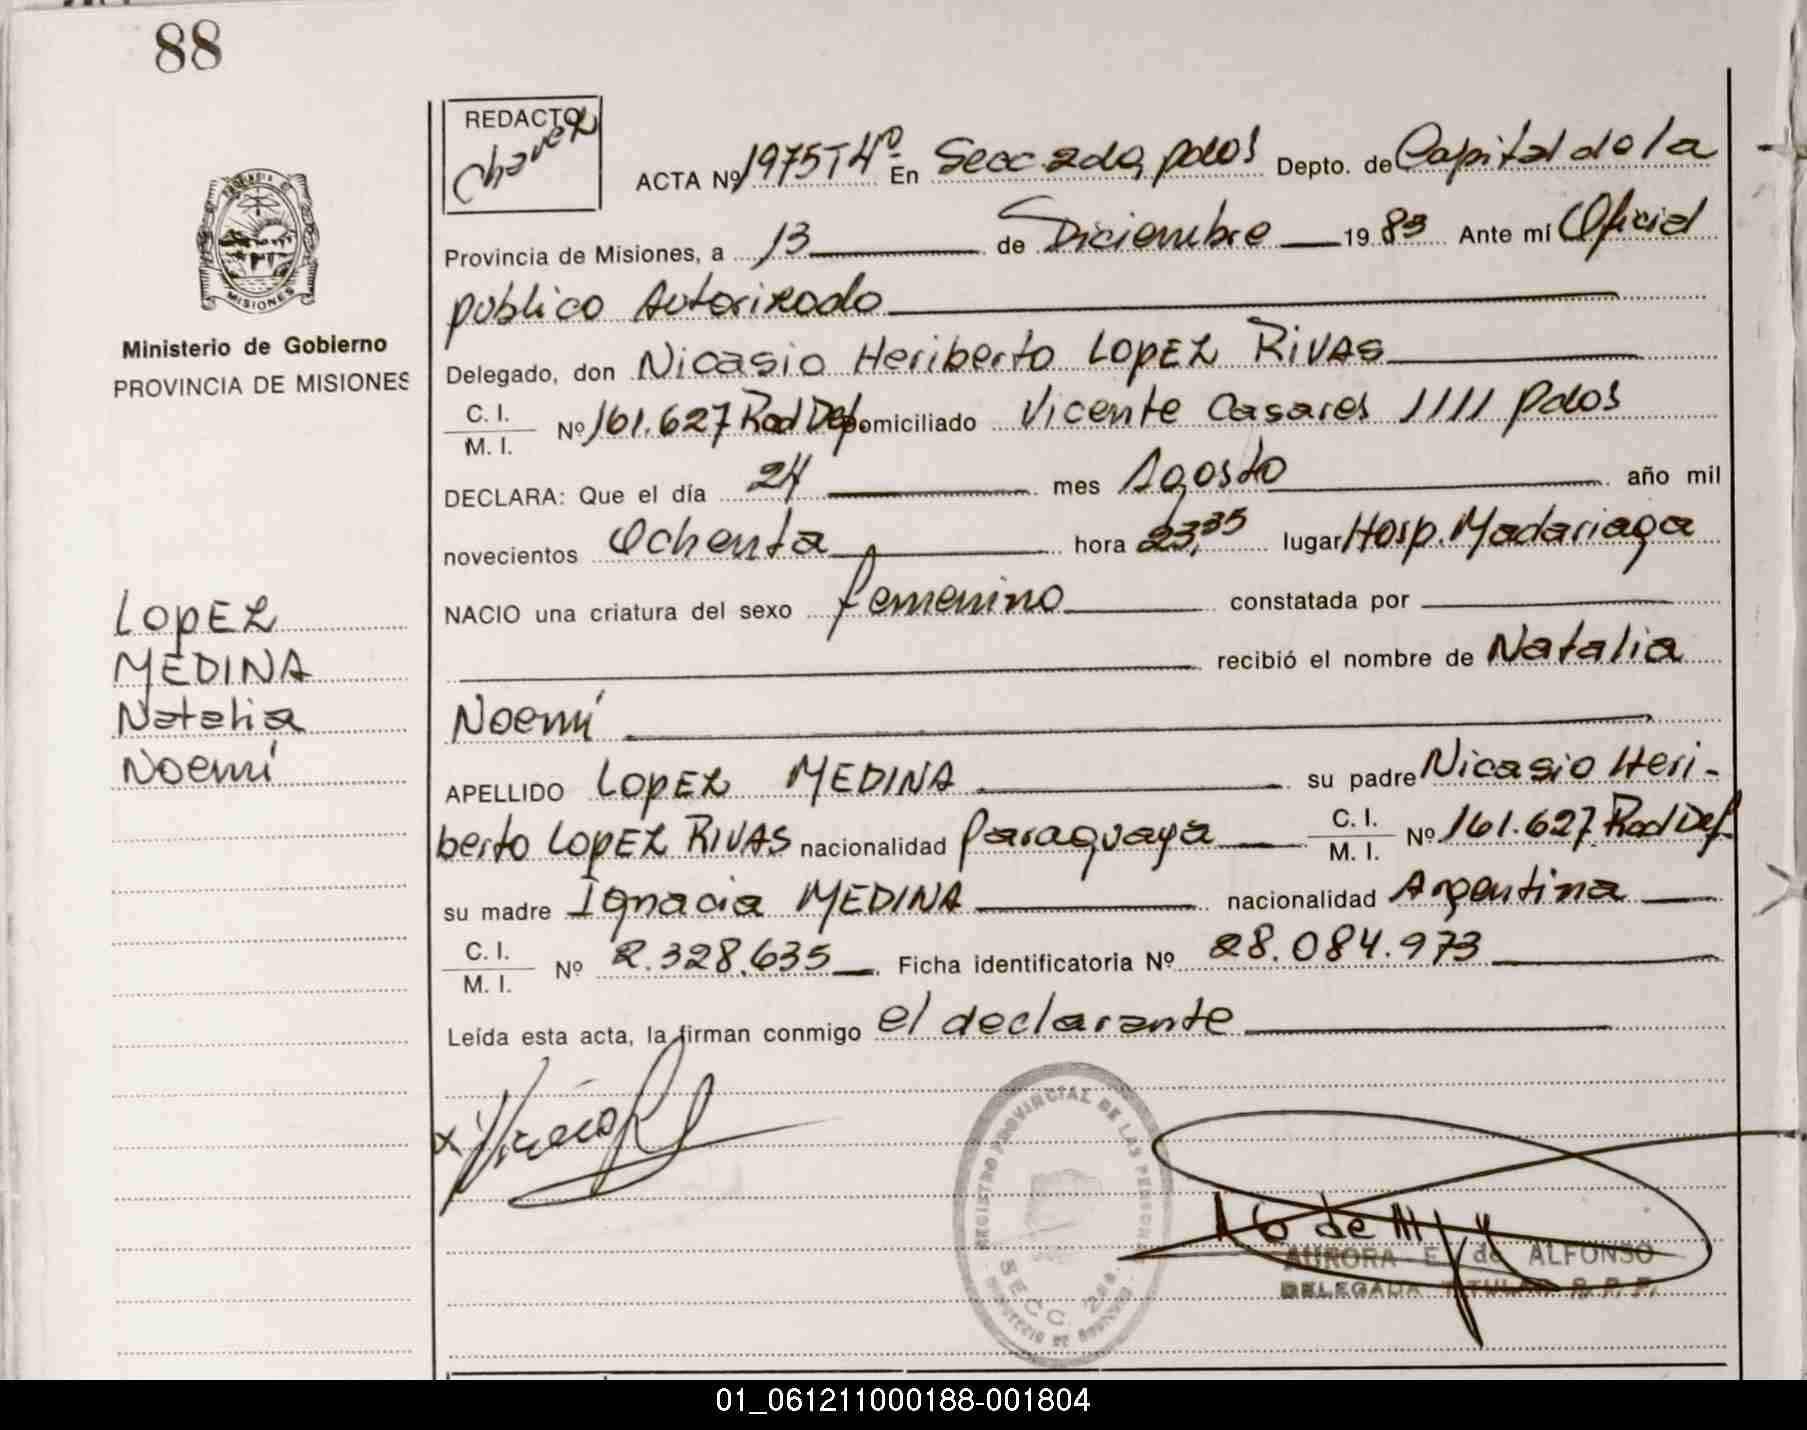 88
REDACTOR
Chavez
ACTA Nº 1975 T 4º En Secc 2da, pdas Depto. de Capital de la
Provincia de Misiones, a 13 de Diciembre 19 83 Ante mí Oficial
publico Autorizado
MISIONES
Ministerio de Gobierno
PROVINCIA DE MISIONES
Delegado, don Nicasio Heriberto LOPEZ RIVAS
C. I.
M. I. Nº 161.627 Rad Def Domiciliado Vicente Casares 1111 pdas
DECLARA: Que el día 24 mes Agosto año mil
novecientos Ochenta hora 23,35 lugar Hosp. Madariaga
NACIO una criatura del sexo femenino constatada por
recibió el nombre de Natalia
Noemí
LOPEZ
MEDINA
Natalia
Noemí
APELLIDO LOPEZ MEDINA su padre Nicasio Heri-
berto LOPEZ RIVAS nacionalidad Paraguaya C. I. M. I. Nº 161.627 Rad Def.
su madre Ignacia MEDINA nacionalidad Argentina
C. I.
M. I. Nº 2.328.635 Ficha identificatoria Nº 28.084.973
Leída esta acta, la firman conmigo el declarante
x
REGISTRO PROVINCIAL DE LAS PERSONAS
SECC. 2da.
AURORA E. de ALFONSO
DELEGADA TITULAR R. P. P.
01_061211000188-001804